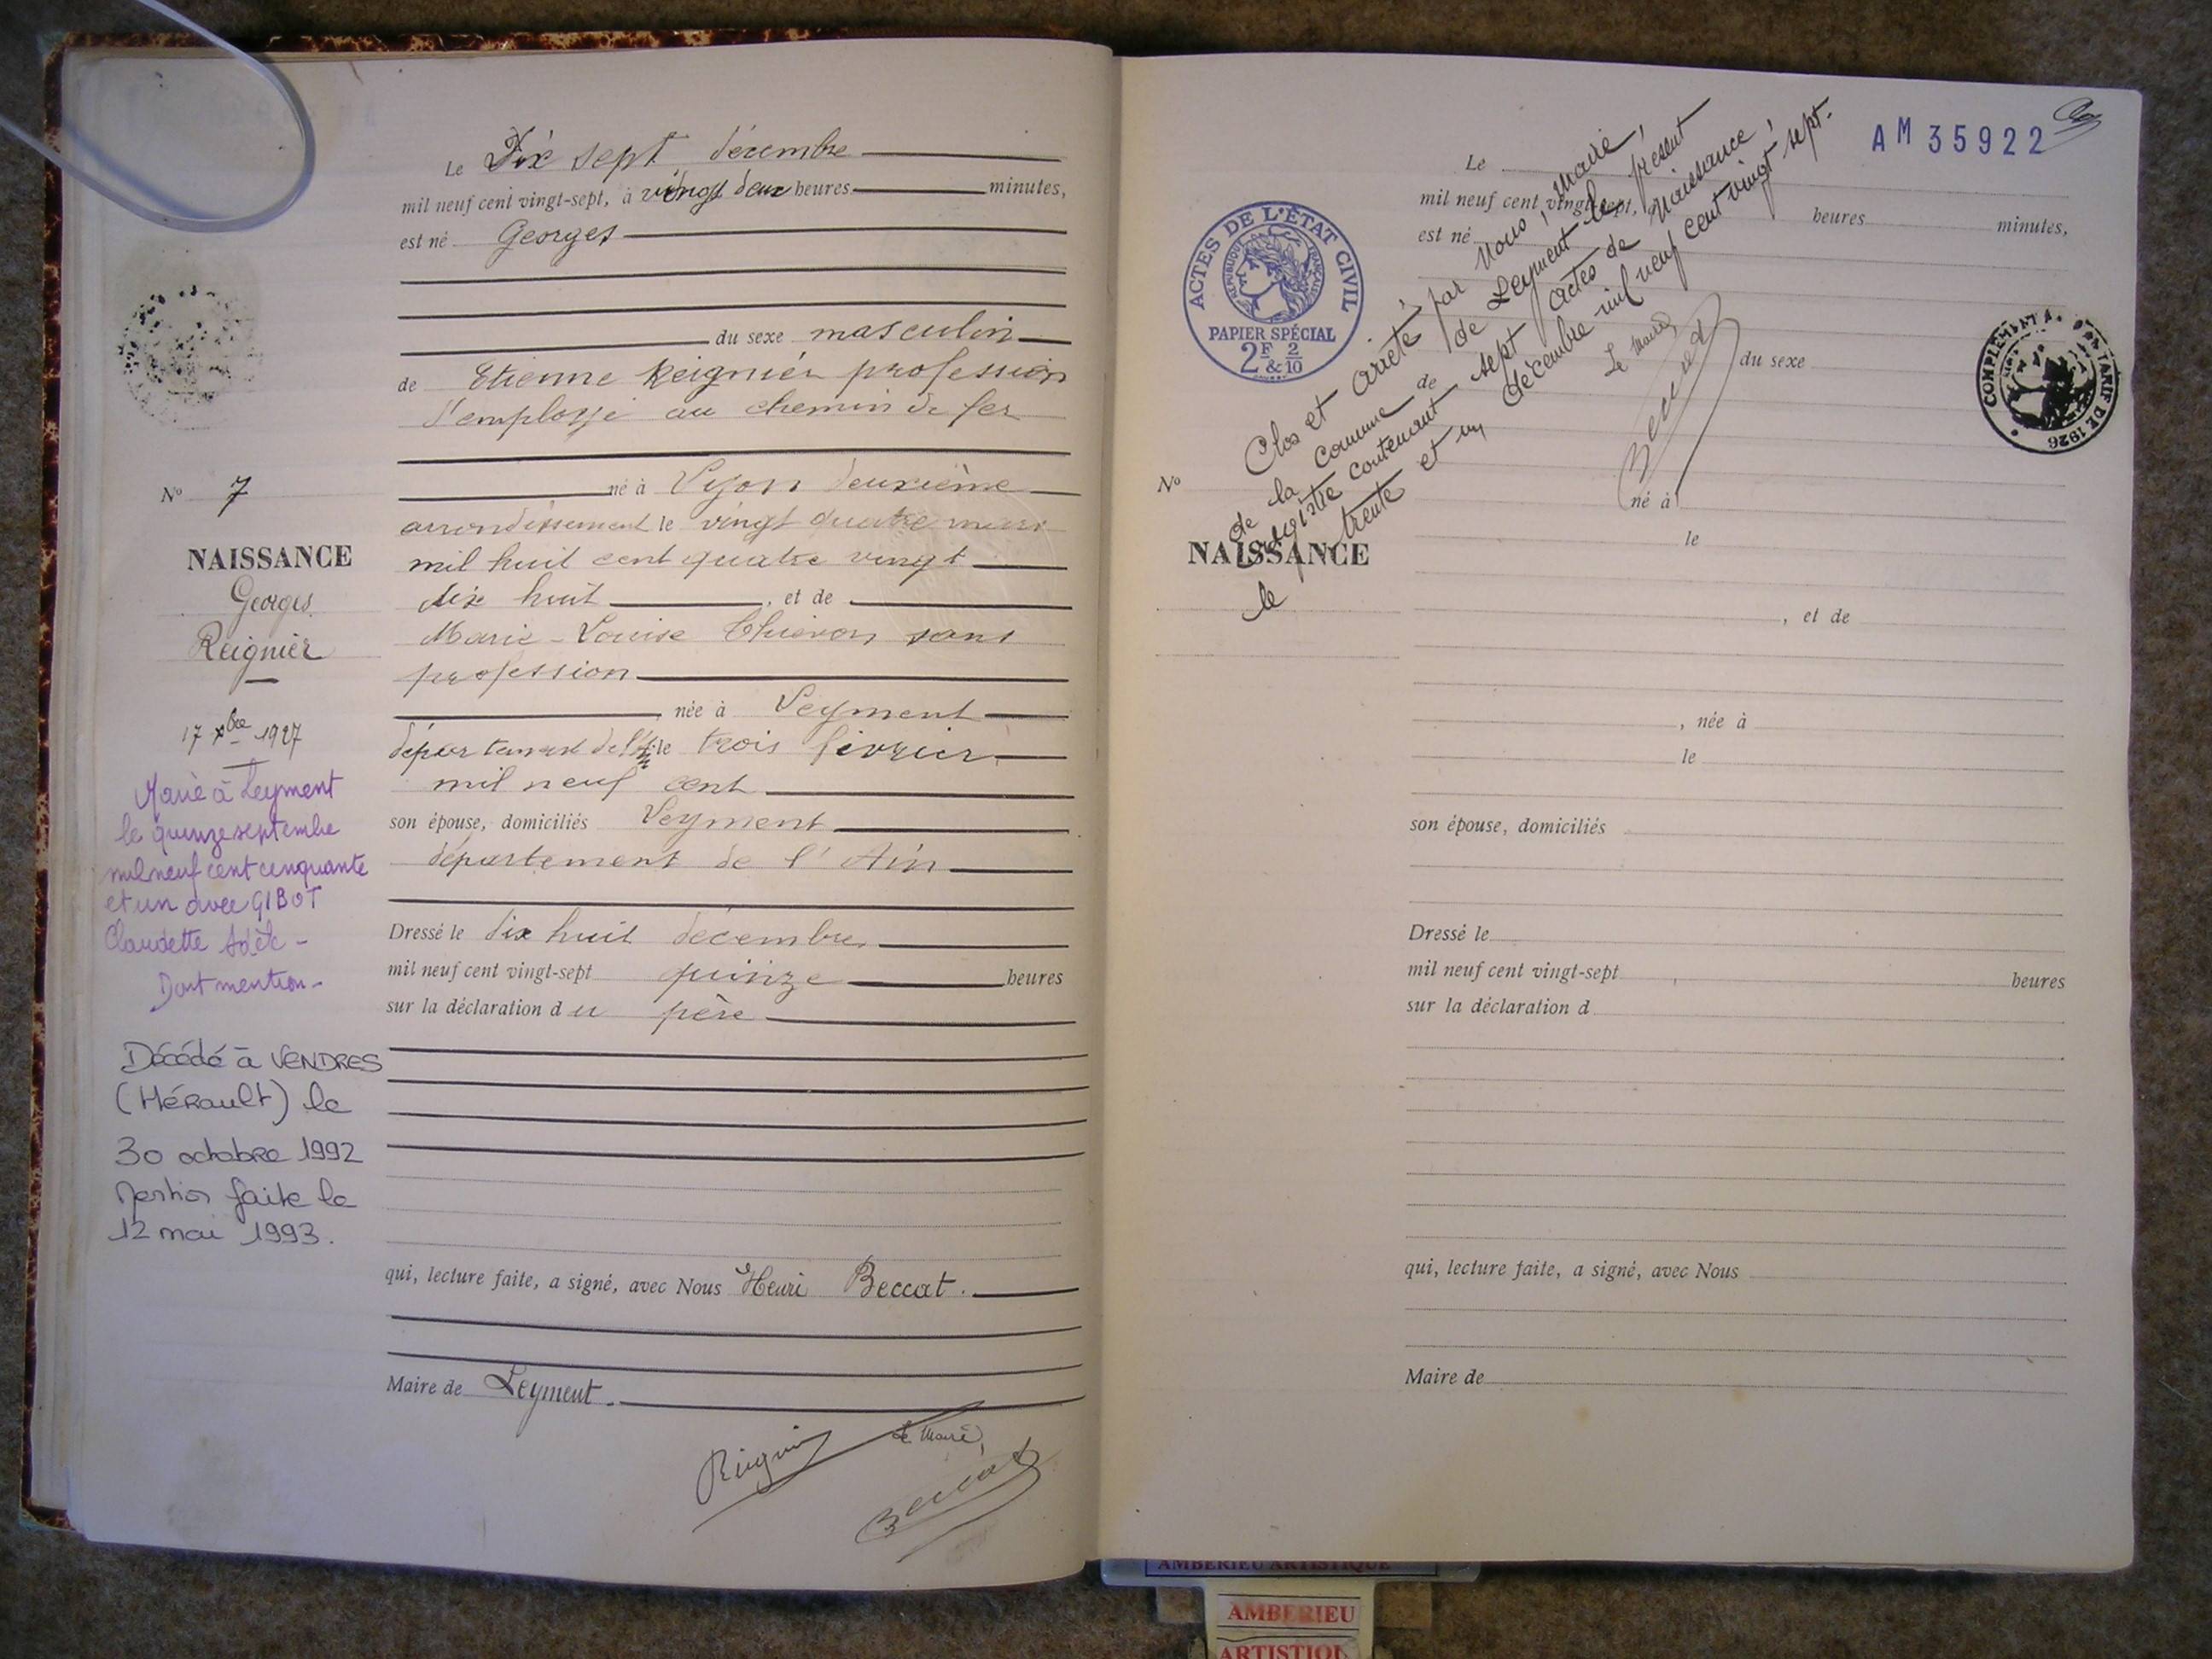 Le Dix sept décembre
mil neuf cent vingt-sept, à vingt deux heures minutes,
est né Georges
du sexe masculin
de Etienne Reignier profession
d'employé au chemin de fer
né à Lyon deuxième
arrondissement le vingt quatre mars
mil huit cent quatre vingt
dix huit , et de
Marie-Louise sans
profession
, née à Leyment
département de l'Ain le trois février
mil neuf cent
son épouse, domiciliés Leyment
département de l'Ain
Dressé le dix huit décembre
mil neuf cent vingt-sept quinze heures
sur la déclaration du père
qui, lecture faite, a signé, avec Nous Henri Beccat.
Maire de Leyment.
Reignier
Le Maire,
Beccat
No 7
NAISSANCE
Georges
Reignier
17 Xbre 1927
Marié à Leyment
le quinze septembre
mil neuf cent cinquante
et un avec GIBOT
Claudette Adèle -
Dont mention -
Décédé à VENDRES
(Hérault) le
30 octobre 1992
Mention faite le
12 mai 1993.
AM 35922
ACTES DE L'ÉTAT CIVIL
RÉPUBLIQUE FRANÇAISE
PAPIER SPÉCIAL
2F & 2/10
Clos et arrêté par Nous, Maire,
de la commune de Leyment le présent
registre contenant sept actes de Naissance,
le trente et un décembre mil neuf cent vingt sept.
Le Maire,
Beccat
COMPLÉMENT AU TARIF DE 1926
No
NAISSANCE
Le
mil neuf cent vingt-sept, à heures minutes,
est né
du sexe
de
né à
le
, et de
, née à
le
son épouse, domiciliés
Dressé le
mil neuf cent vingt-sept , heures
sur la déclaration d
qui, lecture faite, a signé, avec Nous
Maire de
AMBERIEU ARTISTIQUE
AMBERIEU
ARTISTIQU